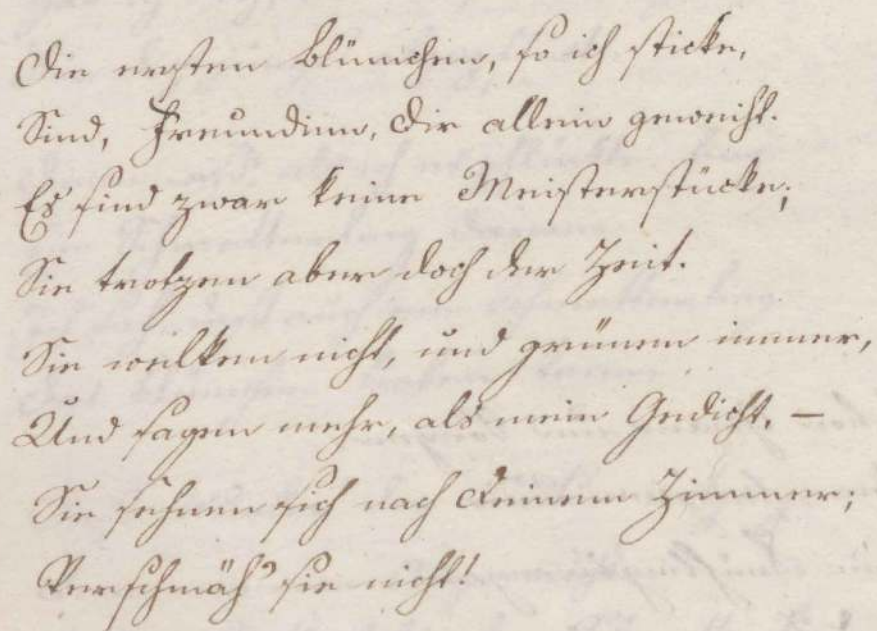 Die ersten Blümchen, so ich sticke,
Sind, Freundinn, Dir allein geweiht.
Es sind zwar keine Meisterstücke;
Sie trotzen aber doch der Zeit.
Sie welken nicht, und grünen immer,
Und sagen mehr, als mein Gedicht. –
Sie sehnen sich nach Deinem Zimmer;
Verschmäh' sie nicht!